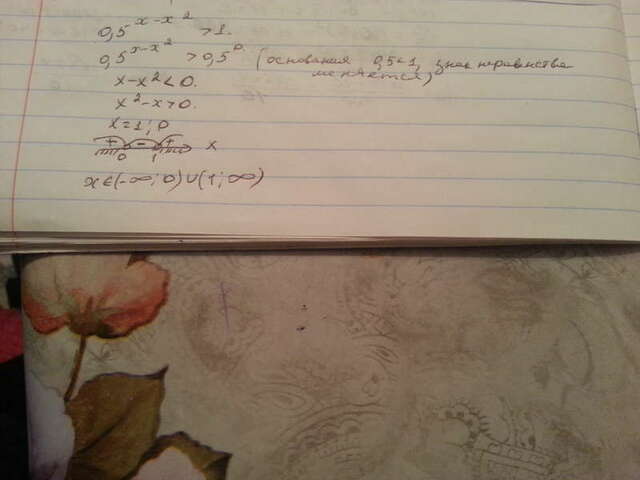 0,5^{x-x^2} > 1.
0,5^{x-x^2} > 0,5^0 (основания 0,5<1, знак неравенства
меняется)
x-x^2<0.
x^2-x>0.
x=1; 0
+ - +
0 1 x
x∈(-∞; 0)∪(1; ∞)